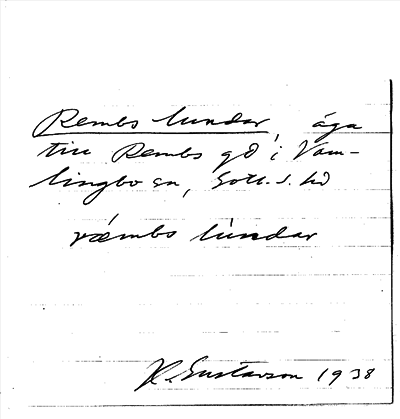 Rembs lundar, äga
till Rembs gd i Vam-
lingbo sn, Gotl. s. hd
ræmbs lùndar
H. Gustavson 1938